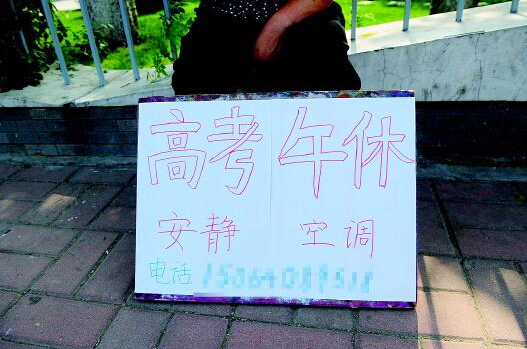 高考 午休
安静 空调
电话